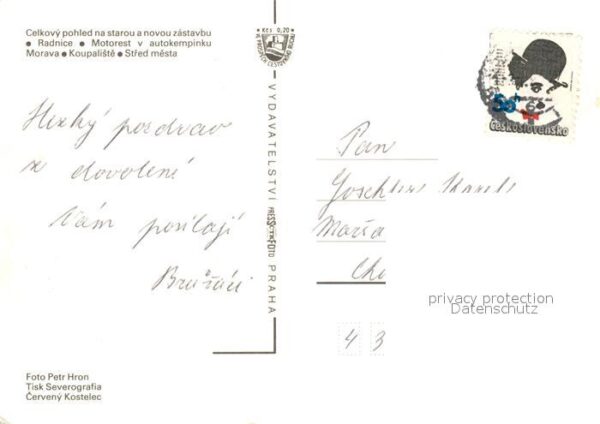 Celkový pohled na starou a novou zástavbu
• Radnice • Motorest v autokempinku
Morava • Koupaliště • Střed města
Kčs 0,20
VYDAVATELSTVÍ PRESSFOTO PRAHA
Československo
Hezký pozdrav
z dovolené
Vám posílají
Pan
Karel
Cho
4 3
privacy protection
Datenschutz
Foto Petr Hron
Tisk Severografia
Červený Kostelec